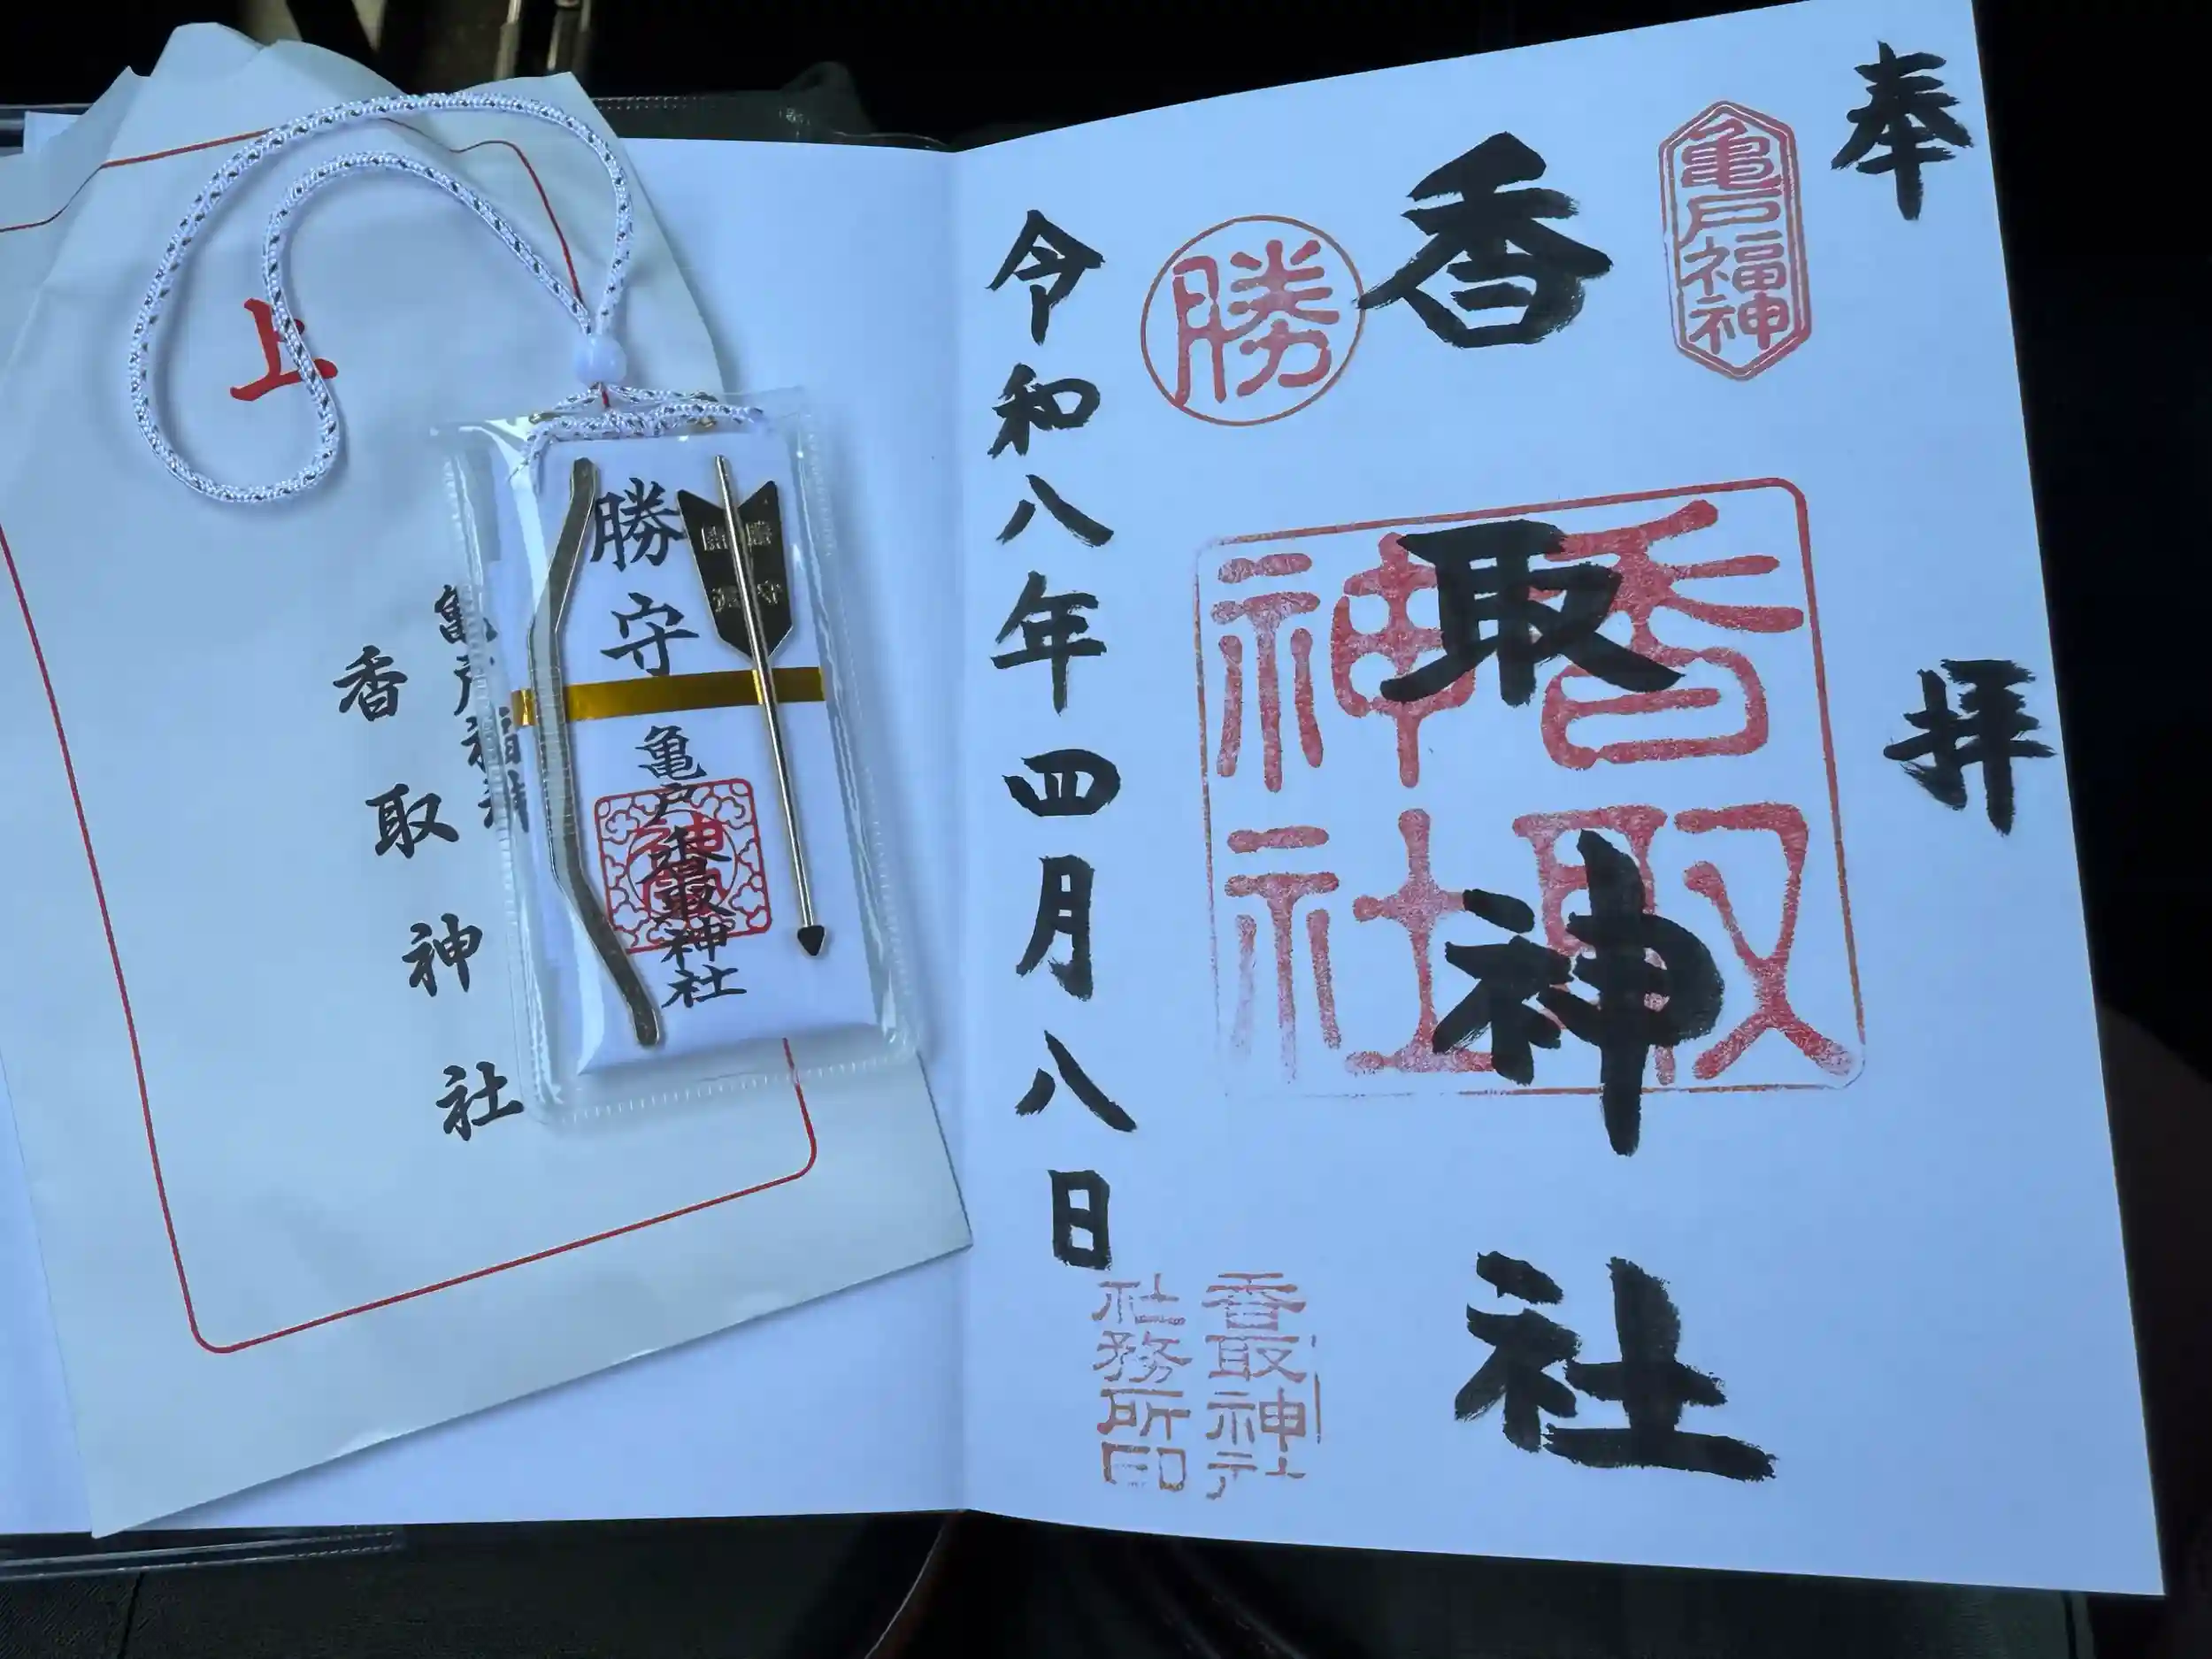 奉拝
亀戸福神
香取神社
香取神社
勝
令和八年四月八日
香取神社
社務所印
上
亀戸福神
香取神社
勝守
亀戸香取神社